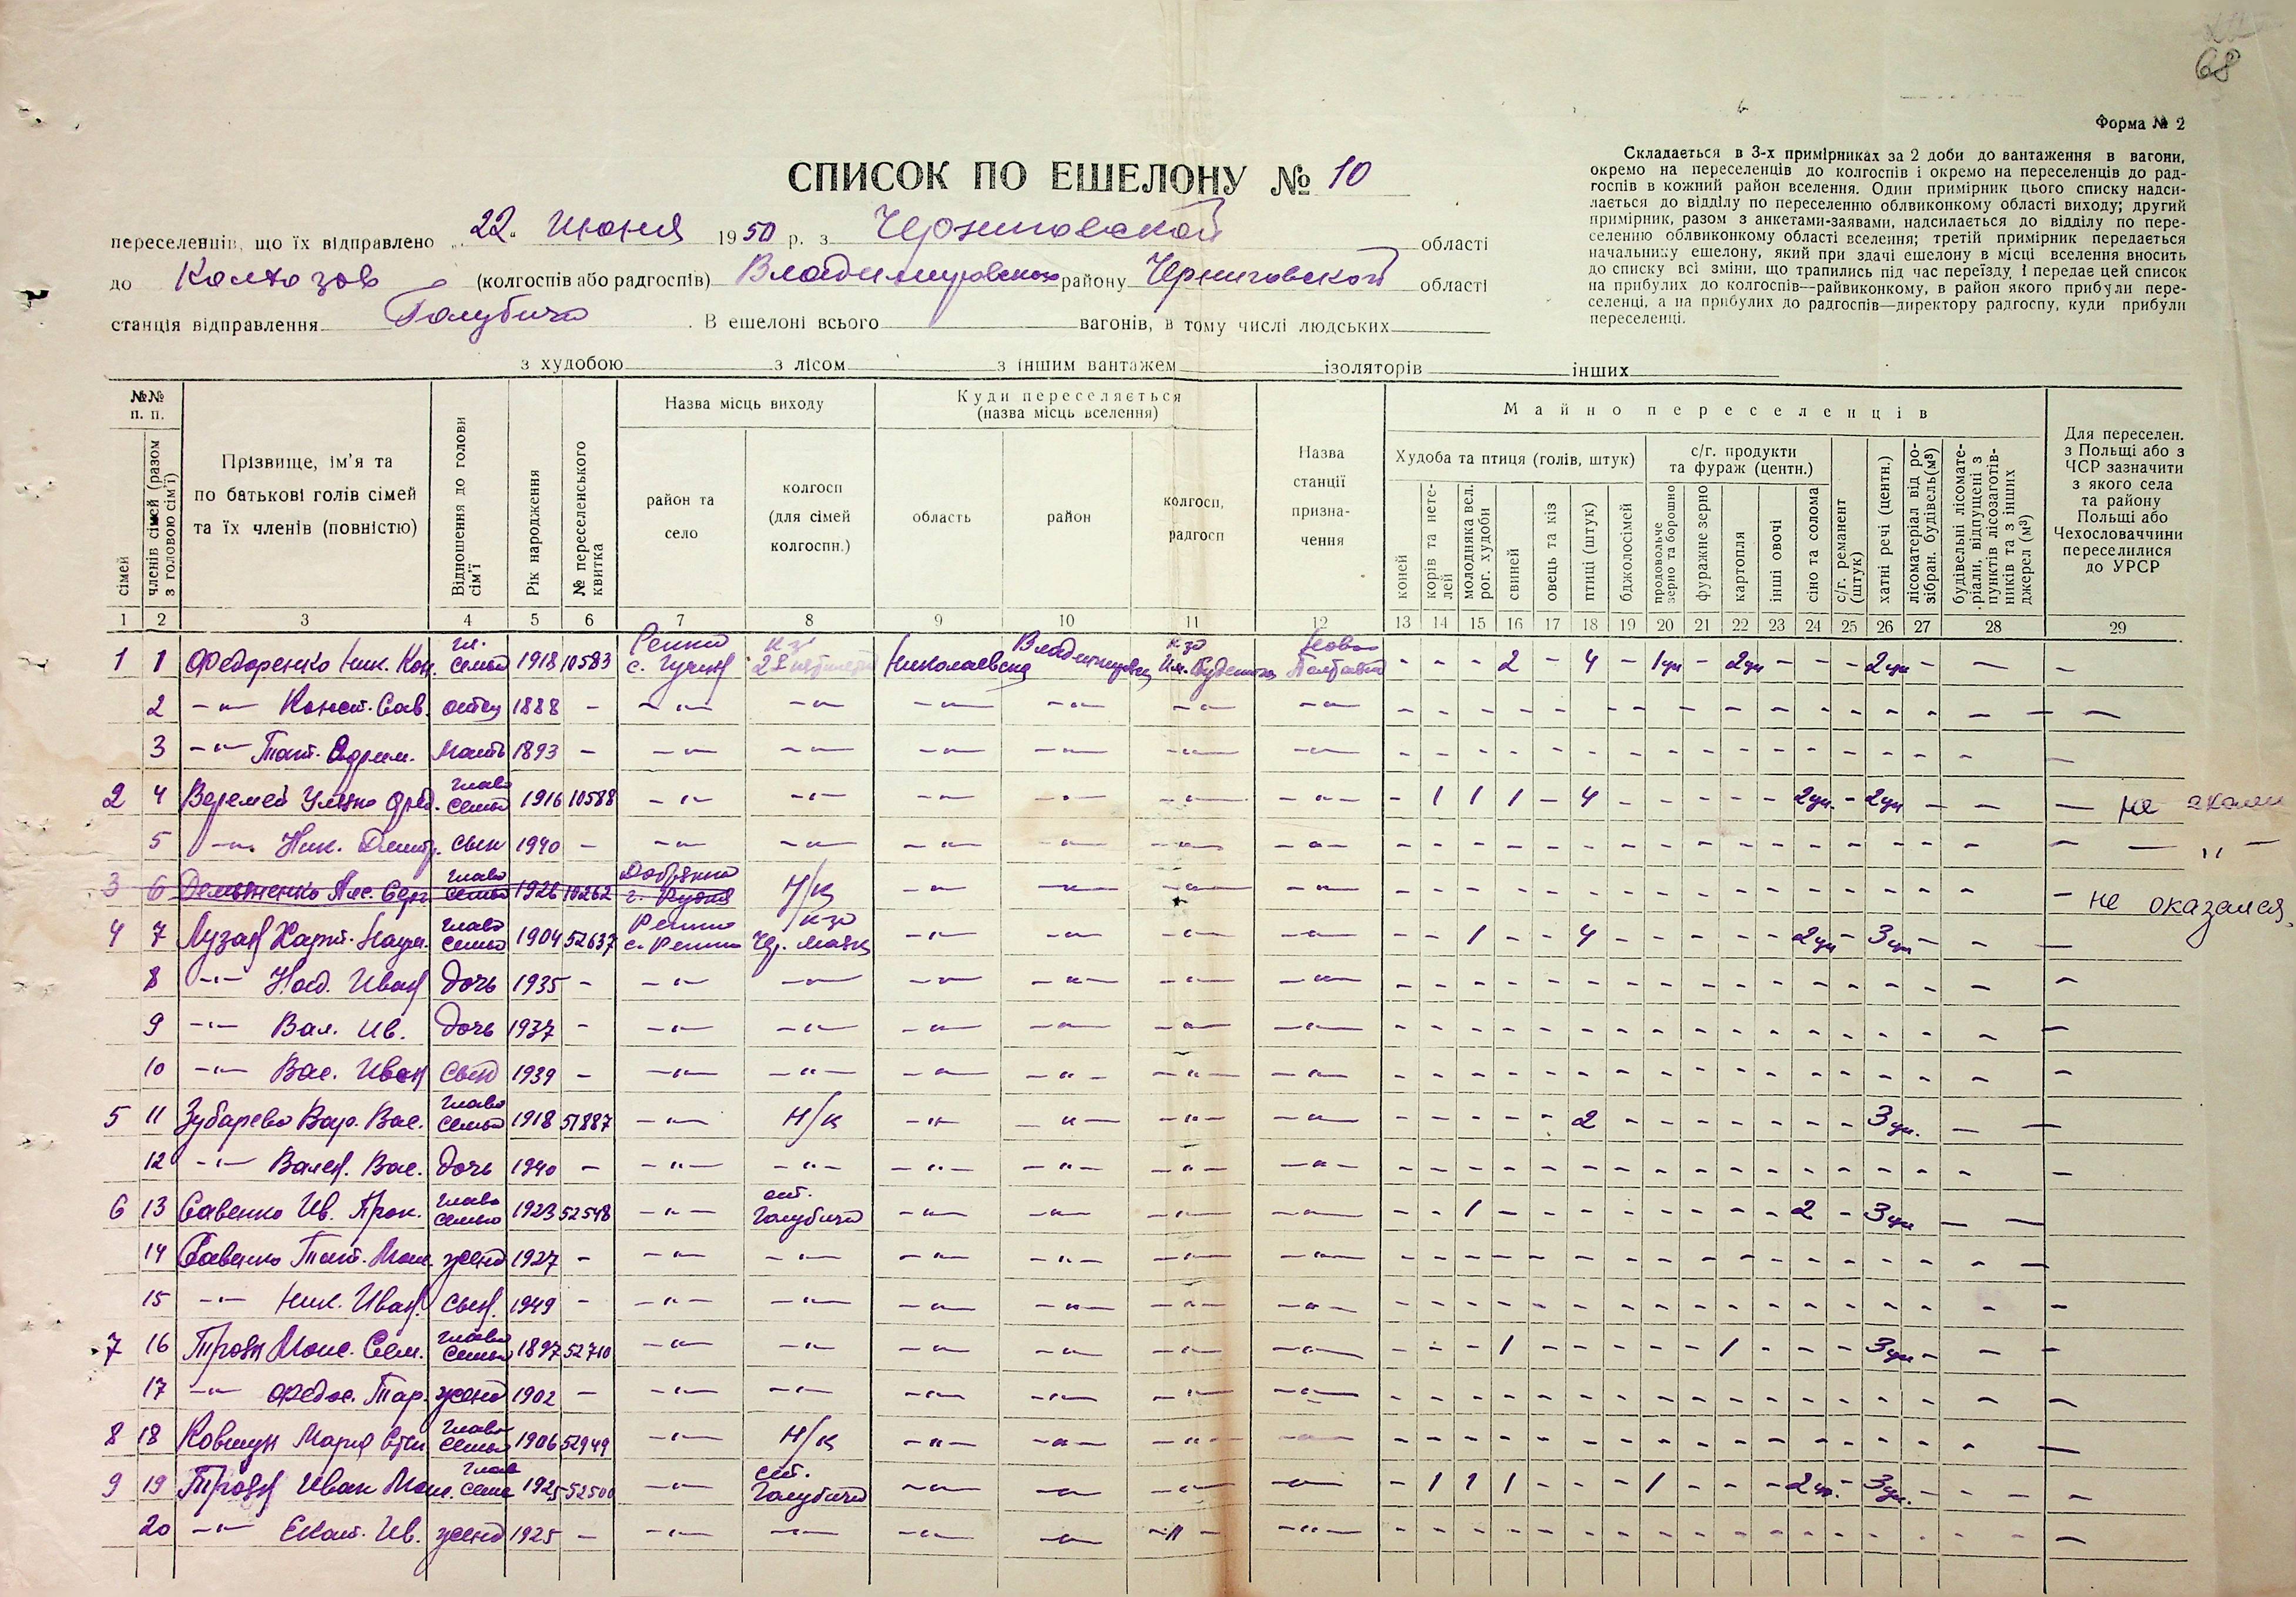 68
Форма № 2
СПИСОК ПО ЕШЕЛОНУ № 10
Складається в 3-х примірниках за 2 доби до вантаження в вагони,
окремо на переселенців до колгоспів і окремо на переселенців до рад-
госпів в кожний район вселення. Один примірник цього списку надси-
лається до відділу по переселенню облвиконкому області виходу; другий
примірник, разом з анкетами-заявами, надсилається до відділу по пере-
селенню облвиконкому області вселення; третій примірник передається
начальнику ешелону, який при здачі ешелону в місці вселення вносить
до списку всі зміни, що трапились під час переїзду, і передає цей список
на прибулих до колгоспів—райвиконкому, в район якого прибули пере-
селенці, а на прибулих до радгоспів—директору радгоспу, куди прибули
переселенці.
переселенців, що їх відправлено „22“ Июня 1950 р. з Черниговской області
до Колхозов (колгоспів або радгоспів) Владимировского району Черниговской області
станція відправлення Голубичи. В ешелоні всього вагонів, в тому числі людських
з худобою з лісом з іншим вантажем ізоляторів інших
№№ п. п.
сімей
членів сімей (разом з головою сім'ї)
Прізвище, ім'я та по батькові голів сімей та їх членів (повністю)
Відношення до голови сім'ї
Рік народження
№ переселенського квитка
Назва місць виходу
район та село
колгосп (для сімей колгоспн.)
Куди переселяється (назва місць вселення)
область
район
колгосп, радгосп
Назва станції призна-чення
Майно переселенців
Худоба та птиця (голів, штук)
коней
корів та нете-лей
молодняка вел. рог. худоби
свиней
овець та кіз
птиці (штук)
бджолосімей
с/г. продукти та фураж (центн.)
продовольче зерно та борошно
фуражне зерно
картопля
інші овочі
сіно та солома
с/г. реманент (штук)
хатні речі (центн.)
лісоматеріал від ро-зібран. будівель(м³)
будівельні лісомате-ріали, відпущені з пунктів лісозаготів-ників та з інших джерел (м³)
Для переселен. з Польщі або з ЧСР зазначити з якого села та району Польщі або Чехословаччини переселилися до УРСР
1 2 3 4 5 6 7 8 9 10 11 12 13 14 15 16 17 18 19 20 21 22 23 24 25 26 27 28 29
1 1 Федоренко Ник. Кон. гл. семьи 1918 10583 Репки с. Гучин кз Николаевская Владимировск кзо им. Буденного Ново Полтавка - - - 2 - 4 - 1цн - 2цн - - - 2цн - - -
2 -"- Конст. Сав. отец 1888 - -"- -"- -"- -"- -"- -"-
3 -"- Тат. Ефим. Мать 1893 - -"- -"- -"- -"- -"- -"-
2 4 Веремей Ульяна Фед. глава семьи 1916 10588 -"- -"- -"- -"- -"- -"- - 1 1 1 - 4 - - - - - 2цн. - 2цн - - - не
5 -"- Ник. Дмитр. сын 1940 - -"- -"- -"- -"- -"- -"- - " -
3 6 Демьяненко Алс. Серг. глава семьи 1926 10262 Добрянка с. Рудня Н/К -"- -"- -"- -"- не оказался.
4 7 Лузан Харит. Наум. глава семьи 1904 52637 Репки с. Репки кзо Чр. Маяк -"- -"- -"- -"- - - 1 - - 4 - - - - - 2цн - 3цн - - -
8 -"- Над. Иван дочь 1935 - -"- -"- -"- -"- -"- -"-
9 -"- Вал. Ив. дочь 1937 - -"- -"- -"- -"- -"- -"-
10 -"- Вас. Иван сын 1939 - -"- -"- -"- -"- -"- -"-
5 11 Зубарева Вар. Вас. глава семьи 1918 51887 -"- Н/К -"- -"- -"- -"- - - - - - 2 - - - - - - - 3цн. - -
12 -"- Вален. Вас. дочь 1940 - -"- -"- -"- -"- -"- -"-
6 13 Савенко Ив. Прок. глава семьи 1923 52548 -"- ст. Голубичи -"- -"- -"- -"- - - 1 - - - - - - - - 2 - 3цн - -
14 Савенко Тат. Моис. жена 1927 - -"- -"- -"- -"- -"- -"-
15 -"- Ник. Иван. сын. 1949 - -"- -"- -"- -"- -"- -"-
7 16 Троян Моис. Сем. глава семьи 1897 52710 -"- -"- -"- -"- -"- -"- - - - 1 - - - - - 1 - - - 3цн - - -
17 -"- Федос. Тар. жена 1902 - -"- -"- -"- -"- -"- -"-
8 18 Ковшун Мария глава семьи 1906 52949 -"- Н/К -"- -"- -"- -"-
9 19 Троян Иван Моис. глав семьи 1925 52500 -"- ст. Голубичи -"- -"- -"- -"- - 1 1 1 - - - 1 - - - 2цн. - 3цн. - - -
20 -"- Екат. Ив. жена 1925 - -"- -"- -"- -"- -"- -"-